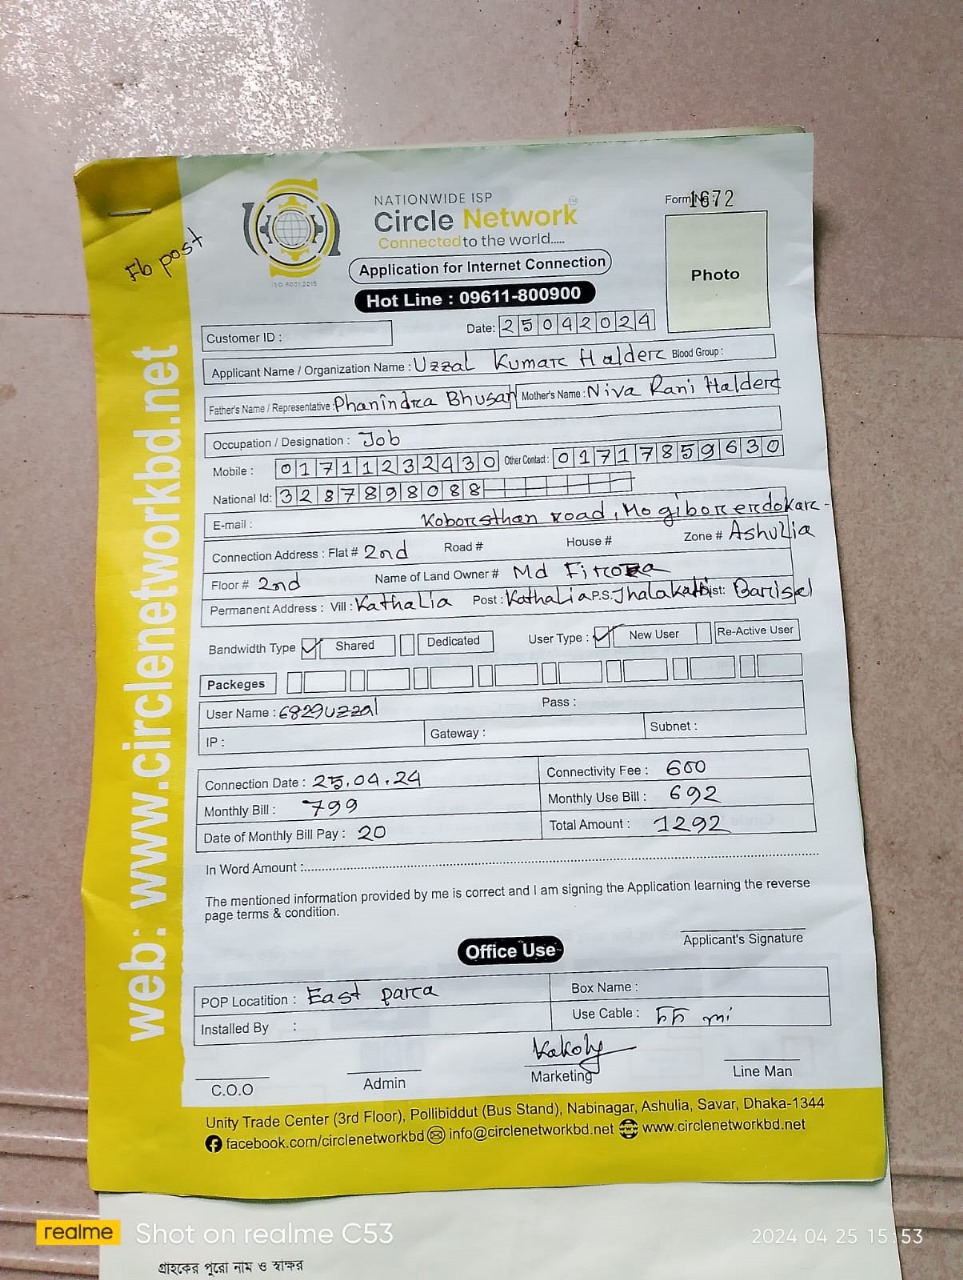 NATIONWIDE ISP
Circle Network
Connected to the world.....
ISO 9001:2015
Form No: 1672
Photo
Fb post
Application for Internet Connection
Hot Line : 09611-800900
Customer ID :
Date: 25042024
Applicant Name / Organization Name : Uzzal Kumar Halder Blood Group :
Father's Name / Representative : Phanindra Bhusan Mother's Name : Niva Rani Halder
Occupation / Designation : Job
Mobile : 01711232430 Other Contact : 01717859630
National Id: 3287898088
E-mail : Koborsthan road, Mogiborerdokar-
Connection Address : Flat # 2nd Road # House # Zone # Ashulia
Floor # 2nd Name of Land Owner # Md Firoza
Permanent Address : Vill : Kathalia Post : Kathalia P.S. Jhalakathi Dist: Barisal
Bandwidth Type Shared Dedicated User Type : New User Re-Active User
Packeges
User Name : 6829uzzal Pass :
IP : Gateway : Subnet :
Connection Date : 25.04.24 Connectivity Fee : 600
Monthly Bill : 799 Monthly Use Bill : 692
Date of Monthly Bill Pay : 20 Total Amount : 1292
In Word Amount :
The mentioned information provided by me is correct and I am signing the Application learning the reverse
page terms & condition.
Applicant's Signature
Office Use
POP Locatition : East para Box Name :
Installed By : Use Cable : ৮৮ mi
Kakoly
C.O.O Admin Marketing Line Man
Unity Trade Center (3rd Floor), Pollibiddut (Bus Stand), Nabinagar, Ashulia, Savar, Dhaka-1344
facebook.com/circlenetworkbd info@circlenetworkbd.net www.circlenetworkbd.net
web: www.circlenetworkbd.net
realme Shot on realme C53
2024 04 25 15:53
গ্রাহকের পুরো নাম ও স্বাক্ষর